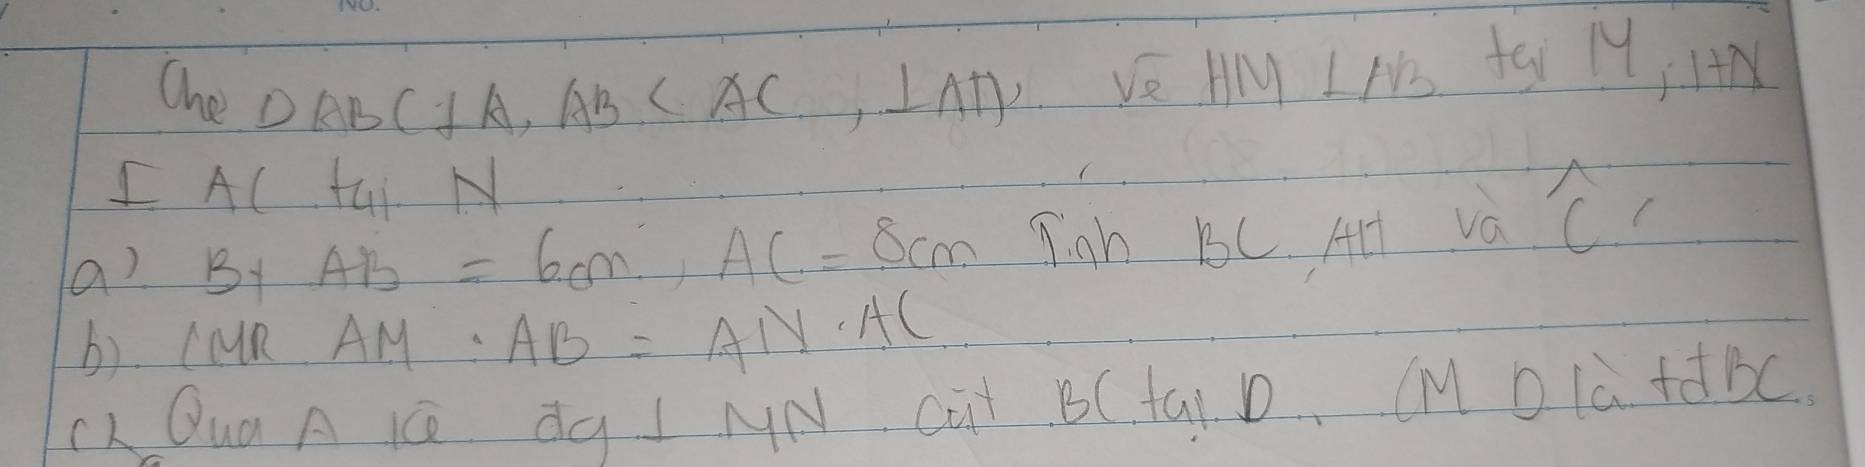 No.
Cho D ABC ⊥ A, AB < AC, ⊥ AH. Vẽ HM ⊥ AB tại M, HN
⊥ AC tại N
a) Bt AB = 6cm, AC = 8cm Tính BC, AH và Ĉ
b) CMR AM . AB = AN . AC
c) Qua A kẻ đg ⊥ MN cắt BC tại D. CM D là tđ BC.